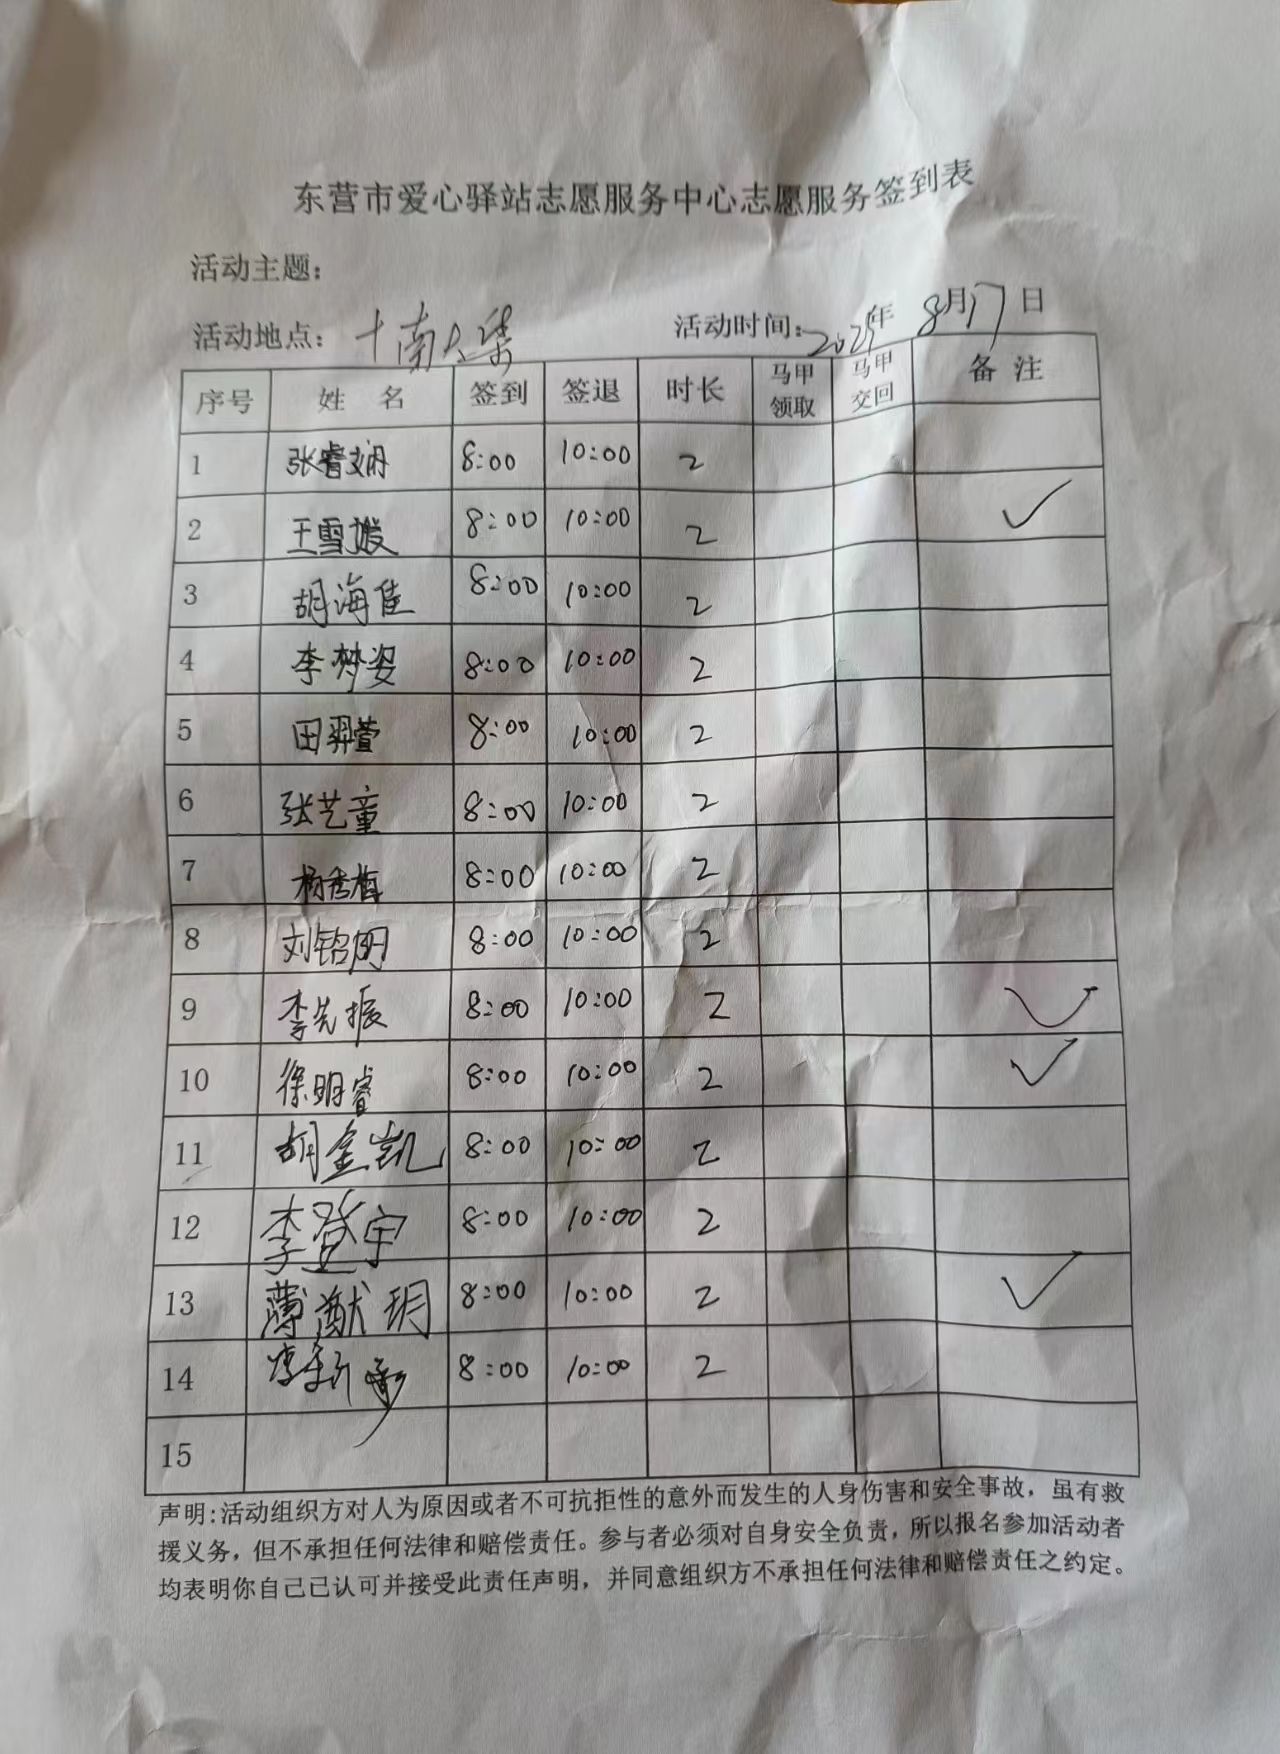 东营市爱心驿站志愿服务中心志愿服务签到表
活动主题：
活动地点：十南大集 活动时间：2025年 8月17日
序号 姓名 签到 签退 时长 马甲领取 马甲交回 备注
1 张睿娴 8:00 10:00 2
2 王雪 8:00 10:00 2 ✓
3 胡海佳 8:00 10:00 2
4 李梦姿 8:00 10:00 2
5 田羿萱 8:00 10:00 2
6 张艺童 8:00 10:00 2
7 杨秀梅 8:00 10:00 2
8 刘铭玥 8:00 10:00 2
9 李先振 8:00 10:00 2 ✓
10 徐明睿 8:00 10:00 2 ✓
11 胡金凯 8:00 10:00 2
12 李登宇 8:00 10:00 2
13 薄猷玥 8:00 10:00 2 ✓
14 8:00 10:00 2
15
声明：活动组织方对人为原因或者不可抗拒性的意外而发生的人身伤害和安全事故，虽有救
援义务，但不承担任何法律和赔偿责任。参与者必须对自身安全负责，所以报名参加活动者
均表明你自己已认可并接受此责任声明，并同意组织方不承担任何法律和赔偿责任之约定。